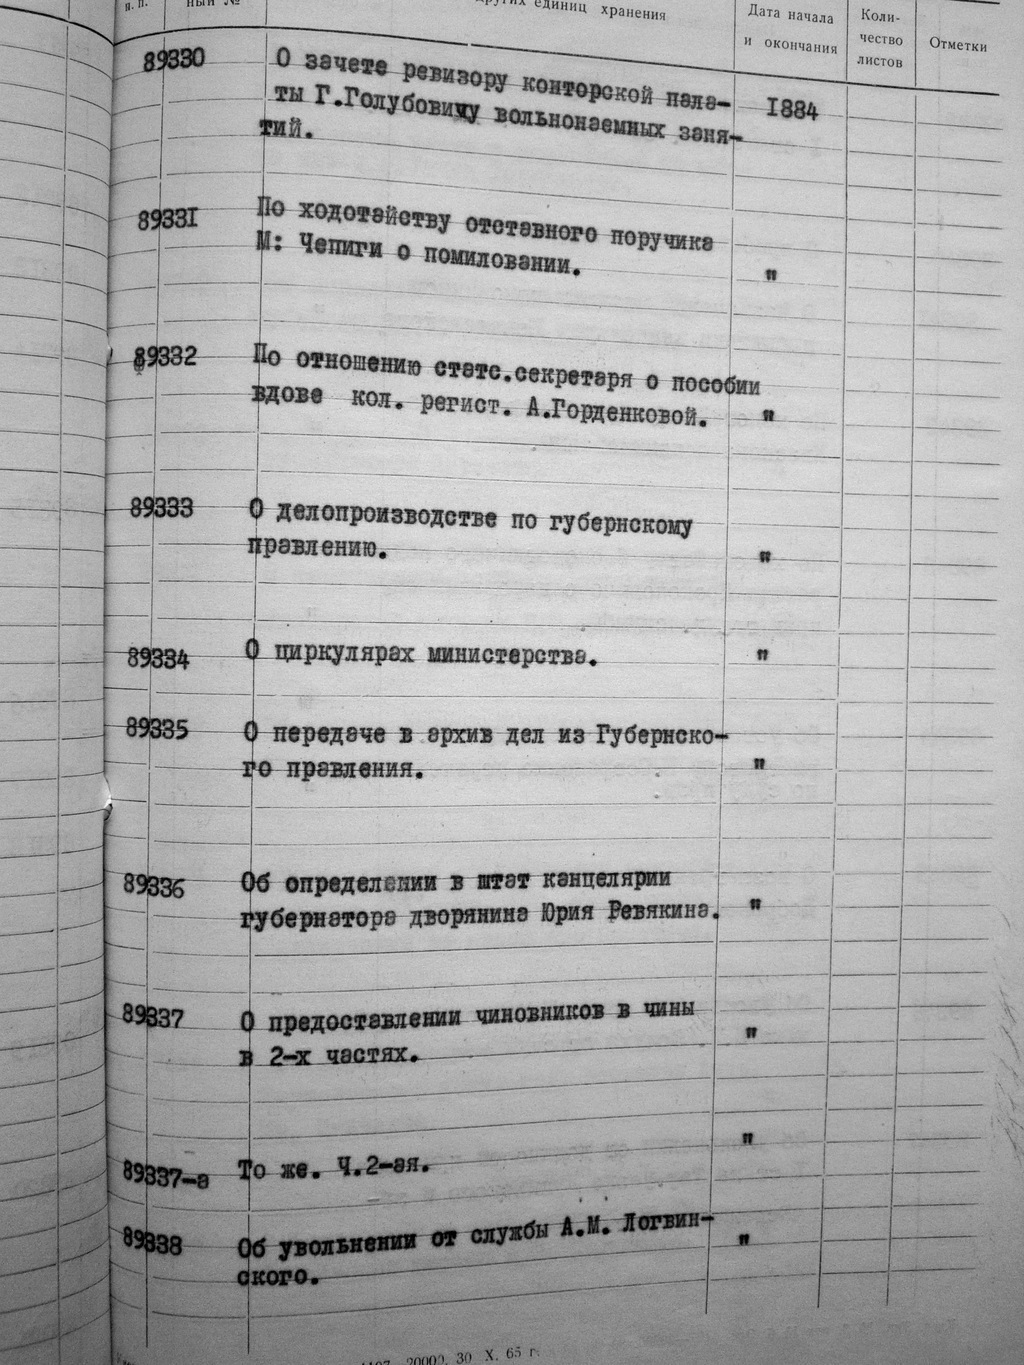 п. п.
ный №
других единиц хранения
Дата начала
и окончания
Коли-
чество
листов
Отметки
89330 О зачете ревизору конторской пала- 1884
ты Г.Голубовичу вольнонаемных заня-
тий.
89331 По ходотайству отставного поручика
М: Чепиги о помиловании. "
89332 По отношению статс.секретаря о пособии
вдове кол. регист. А.Горденковой. "
89333 О делопроизводстве по губернскому
правлению. "
89334 О циркулярах министерства. "
89335 О передаче в архив дел из Губернско-
го правления. "
89336 Об определении в штат канцелярии
губернатора дворянина Юрия Ревякина. "
89337 О предоставлении чиновников в чины
в 2-х частях. "
89337-а То же. Ч.2-ая. "
89338 Об увольнении от службы А.М. Логвин- "
ского.
20000. 30 X. 65 г.